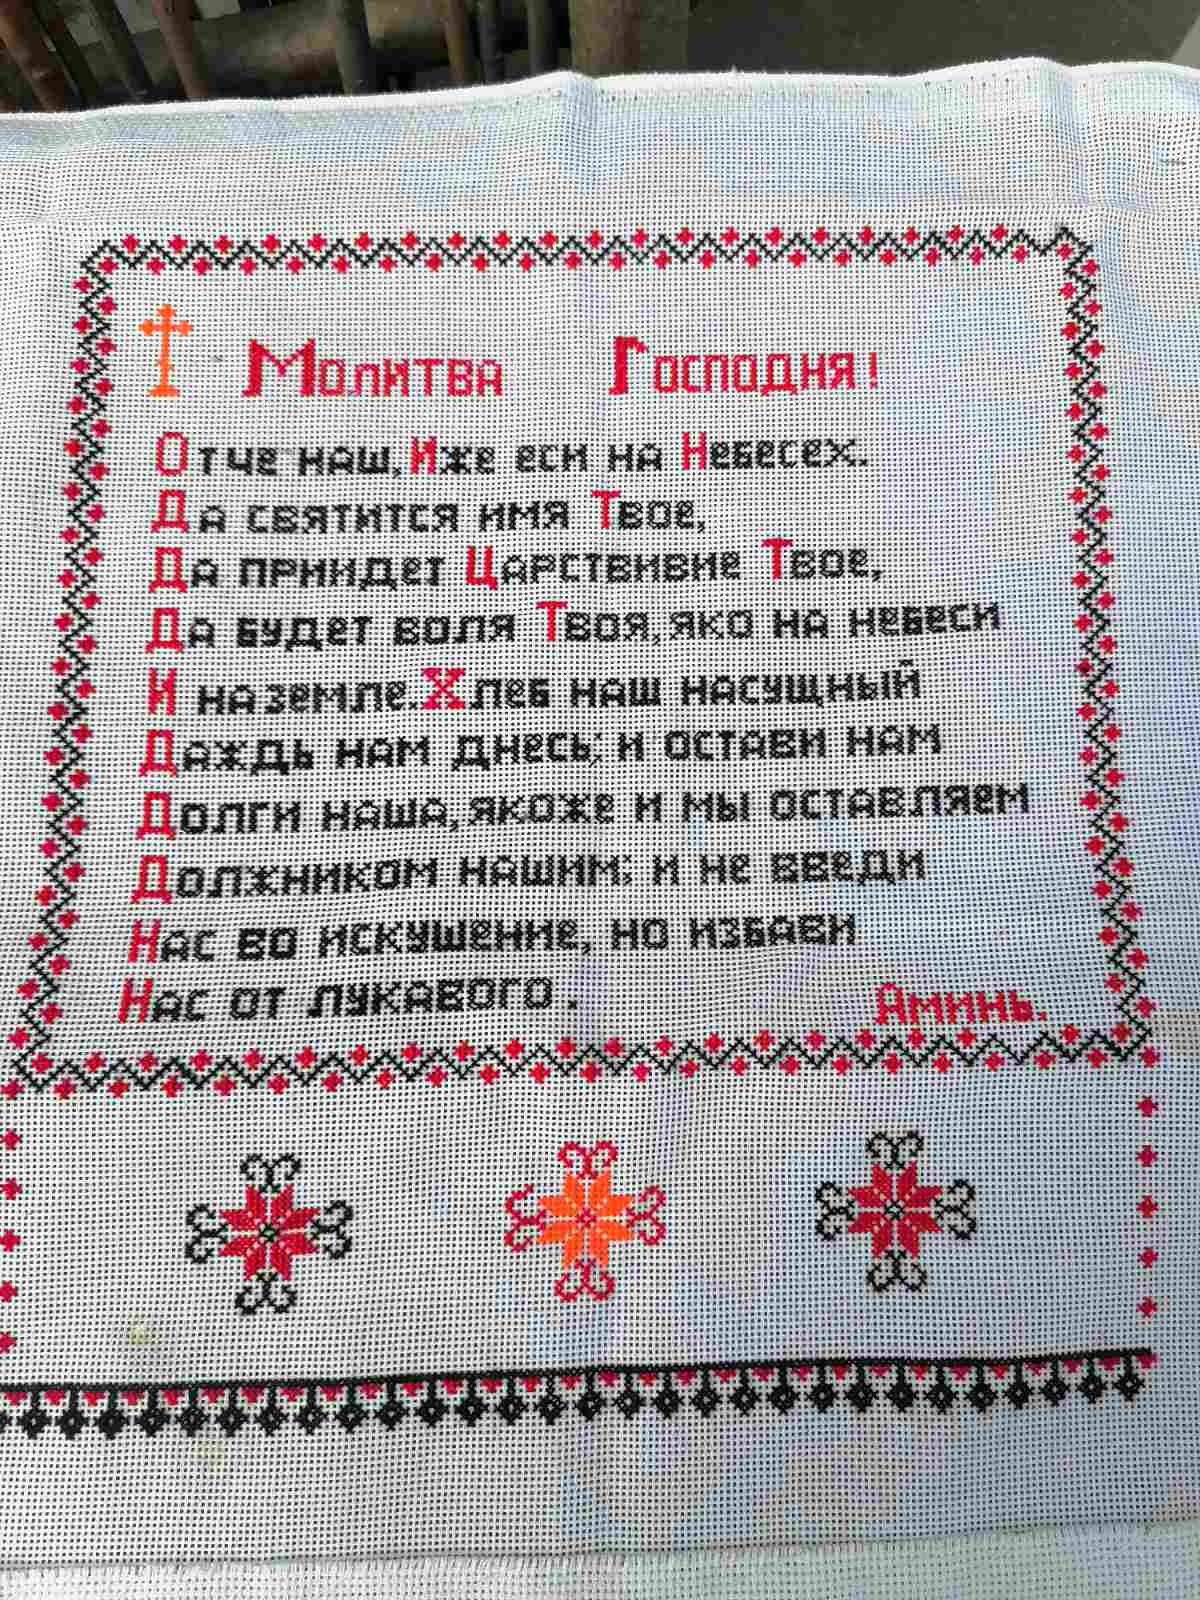 Молитва Господня!
Отче наш, Иже еси на Небесех.
Да святится имя Твое,
Да приидет Царствивие Твое,
Да будет воля Твоя, яко на небеси
И на земле. Хлеб наш насущный
Даждь нам днесь; и остави нам
Долги наша, якоже и мы оставляем
Должником нашим; и не введи
Нас во искушение, но избави
Нас от лукавого.
Аминь.